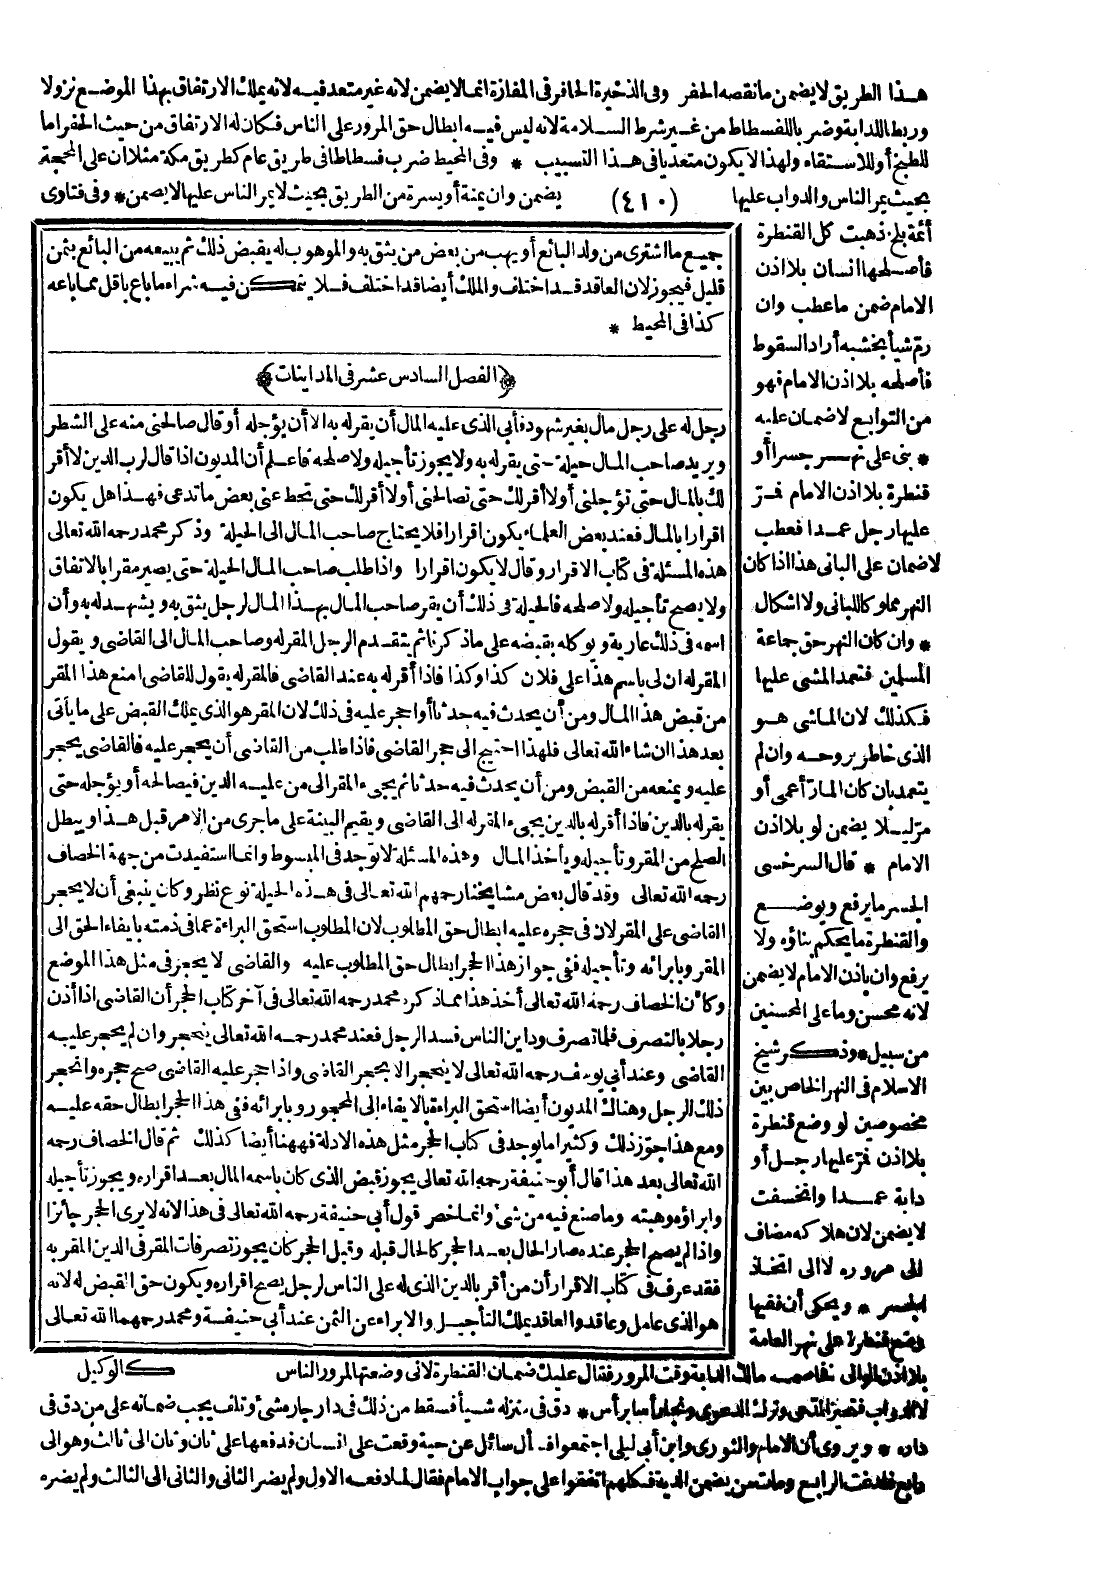 هذا الطريق لا يضمن ما نقصه الحفر وفى الذخيرة الحافر فى المفازة انما لا يضمن لانه غير متعد فيه لانه يملك الارتفاق بهذا الموضع نزولا
وربط الدابة وضرب الفسطاط من غير شرط السلامة لانه ليس فيه ابطال حق المرور على الناس فكان له الارتفاق من حيث الحفر اما
للطبخ أو للاستقاء ولهذا لا يكون متعديا فى هذا التسبيب * وفى المحيط ضرب فسطاطا فى طريق عام كطريق مكة مثلا ان على المحجة
بحيث يمر الناس والدواب عليها (٤١٠) يضمن وان يمنة أو يسرة من الطريق بحيث لا يمر الناس عليها لا يضمن * وفى فتاوى
أئمة بلخ ذهبت كل القنطرة
فأصلحها انسان بلا اذن
الامام ضمن ما عطب وان
رم شيأ بخشبه أراد السقوط
فأصلحه بلا اذن الامام فهو
من التوابع لا ضمان عليه
* بنى على نهر جسرا أو
قنطرة بلا اذن الامام فمر
عليها رجل عمدا فعطب
لا ضمان على البانى هذا اذا كان
النهر مملوكا للبانى ولا اشكال
* وان كان النهر حق جماعة
المسلمين فتعمد المشى عليها
فكذلك لان الماشى هو
الذى خاطر بروحه وان لم
يتعمد بان كان المار أعمى أو
مر ليلا يضمن لو بلا اذن
الامام * قال السرخسى
الجسر ما يرفع ويوضع
والقنطرة ما يحكم بناؤه ولا
يرفع وان باذن الامام لا يضمن
لانه محسن وما على المحسنين
من سبيل * وذكر شيخ
الاسلام فى النهر الخاص بين
مخصوصين لو وضع قنطرة
بلا اذن فمر عليها رجل أو
دابة عمدا وانخسفت
لا يضمن لان هلاكه مضاف
الى مروره لا الى اتخاذ
الجسر * ويحكى أن فقيها
وضع قنطرة على نهر العامة
بلا اذن الوالى فخاصمه مالك الدابة وقت المرور فقال عليك ضمان القنطرة لانى وضعتها لمرور الناس
لا الدواب فتحير المدعى وترك الدعوى ونجا رأسا برأس * دق فى منزله شيأ فسقط من ذلك فى دار جاره شئ وتلف يجب ضمانه على من دق فى
داره * ويروى أن الامام والثورى وابن أبى ليلى اجتمعوا فسأل سائل عن حية وقعت على انسان فدفعها على ثان وثان الى ثالث وهو الى
رابع فلدغت الرابع ومات من يضمن الدية فكلهم اتفقوا على جواب الامام فقال لما دفعه الاول ولم يضر الثانى والثانى الى الثالث ولم يضره
جميع ما اشترى من ولد البائع أو يهب من بعض من يثق به والموهوب له يقبض ذلك ثم يبيعه من البائع بثمن
قليل فيجوز لان العاقد قد اختلف والملك أيضا قد اختلف فلا يتمكن فيه شراء ما باع باقل مما باعه
كذا فى المحيط *
﴿الفصل السادس عشر فى المداينات﴾
رجل له على رجل مال بغير شهود فأبى الذى عليه المال أن يقر له به الا أن يؤجله أو قال صالحنى منه على الشطر
ويريد صاحب المال حيلة حتى يقر له به ولا يجوز تأجيله ولا صلحه فاعلم أن المديون اذا قال لرب الدين لا أقر
لك بالمال حتى تؤجلنى أو لا أقر لك حتى تصالحنى أو لا أقر لك حتى تحط عنى بعض ما تدعى فهذا هل يكون
اقرارا بالمال فعند بعض العلماء يكون اقرارا فلا يحتاج صاحب المال الى الحيلة وذكر محمد رحمه الله تعالى
هذه المسئلة فى كتاب الاقرار وقال لا يكون اقرارا واذا طلب صاحب المال الحيلة حتى يصير مقرا بالاتفاق
ولا يصح تأجيله ولا صلحه فالحيلة فى ذلك أن يقر صاحب المال بهذا المال لرجل يثق به ويشهد له به وأن
اسمه فى ذلك عارية ويوكله بقبضه على ما ذكرنا ثم يتقدم الرجل المقر له وصاحب المال الى القاضى ويقول
المقر له ان لى باسم هذا على فلان كذا وكذا فاذا أقر له به عند القاضى فالمقر له يقول للقاضى امنع هذا المقر
من قبض هذا المال ومن أن يحدث فيه حدثا أو احجر عليه فى ذلك لان المقر هو الذى يملك القبض على ما يأتى
بعد هذا ان شاء الله تعالى فلهذا احتيج الى حجر القاضى فاذا طلب من القاضى أن يحجر عليه فالقاضى يحجر
عليه ويمنعه من القبض ومن أن يحدث فيه حدثا ثم يجىء المقر الى من عليه الدين فيصالحه أو يؤجله حتى
يقر له بالدين فاذا أقر له بالدين يجىء المقر له الى القاضى ويقيم البينة على ما جرى من الامر قبل هذا ويبطل
الصلح من المقر وتأجيله ويأخذ المال وهذه المسئلة لا توجد فى المبسوط وانما استفيدت من جهة الخصاف
رحمه الله تعالى وقد قال بعض مشايخنا رحمهم الله تعالى فى هذه الحيلة نوع نظر وكان ينبغى أن لا يحجر
القاضى على المقر لان فى حجره عليه ابطال حق المطلوب لان المطلوب استحق البراءة عما فى ذمته بايفاء الحق الى
المقر وبابرائه وتأجيله ففى جواز هذا الحجر ابطال حق المطلوب عليه والقاضى لا يحجر فى مثل هذا الموضع
وكأن الخصاف رحمه الله تعالى أخذ هذا مما ذكره محمد رحمه الله تعالى فى آخر كتاب الحجر أن القاضى اذا أذن
رجلا بالتصرف فلما تصرف وداين الناس فسد الرجل فعند محمد رحمه الله تعالى ينحجر وان لم يحجر عليه
القاضى وعند أبى يوسف رحمه الله تعالى لا ينحجر الا بحجر القاضى واذا حجر عليه القاضى صح حجره وانحجر
ذلك الرجل وهناك المديون أيضا استحق البراءة بالايفاء الى المحجور وبابرائه ففى هذا الحجر ابطال حقه عليه
ومع هذا جوز ذلك وكثيرا ما يوجد فى كتاب الحجر مثل هذه الادلة فههنا أيضا كذلك ثم قال الخصاف رحمه
الله تعالى بعد هذا قال أبو حنيفة رحمه الله تعالى يجوز قبض الذى كان باسمه المال بعد اقراره ويجوز تأجيله
وابراؤه وهبته وما صنع فيه من شئ وانما خص قول أبى حنيفة رحمه الله تعالى فى هذا لانه لا يرى الحجر جائزا
واذا لم يصح الحجر عنده صار الحال بعد الحجر كالحال قبله وقبل الحجر كان يجوز تصرفات المقر فى الدين المقر به
فقد عرف فى كتاب الاقرار أن من أقر بالدين الذى له على الناس لرجل يصح اقراره ويكون حق القبض له لانه
هو الذى عامل وعاقد والعاقد يملك التأجيل والابراء عن الثمن عند أبى حنيفة ومحمد رحمهما الله تعالى
كالوكيل